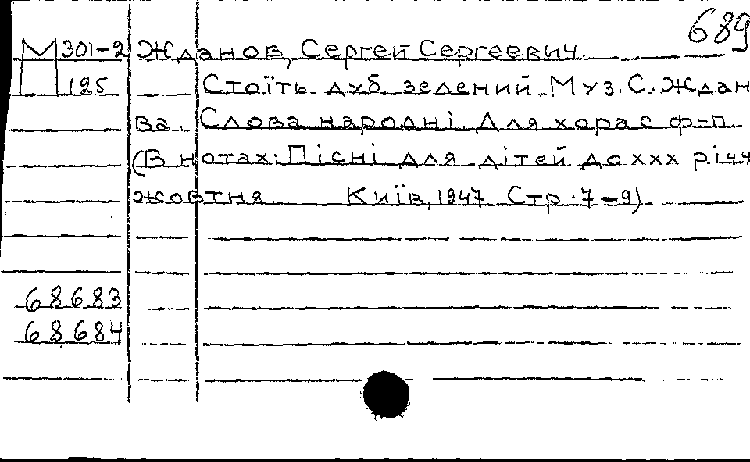 689
М 301-2 Жданов, Сергей Сергеевич.
195 Стоїть дуб зелений. Муз. С. Ждан
ва. Слова народні. Для хора с ф-п.
(В нотах: Пісні для дітей до ХХХ річч
жовтня Київ, 1947. Стр. 7-9).
68683
68684